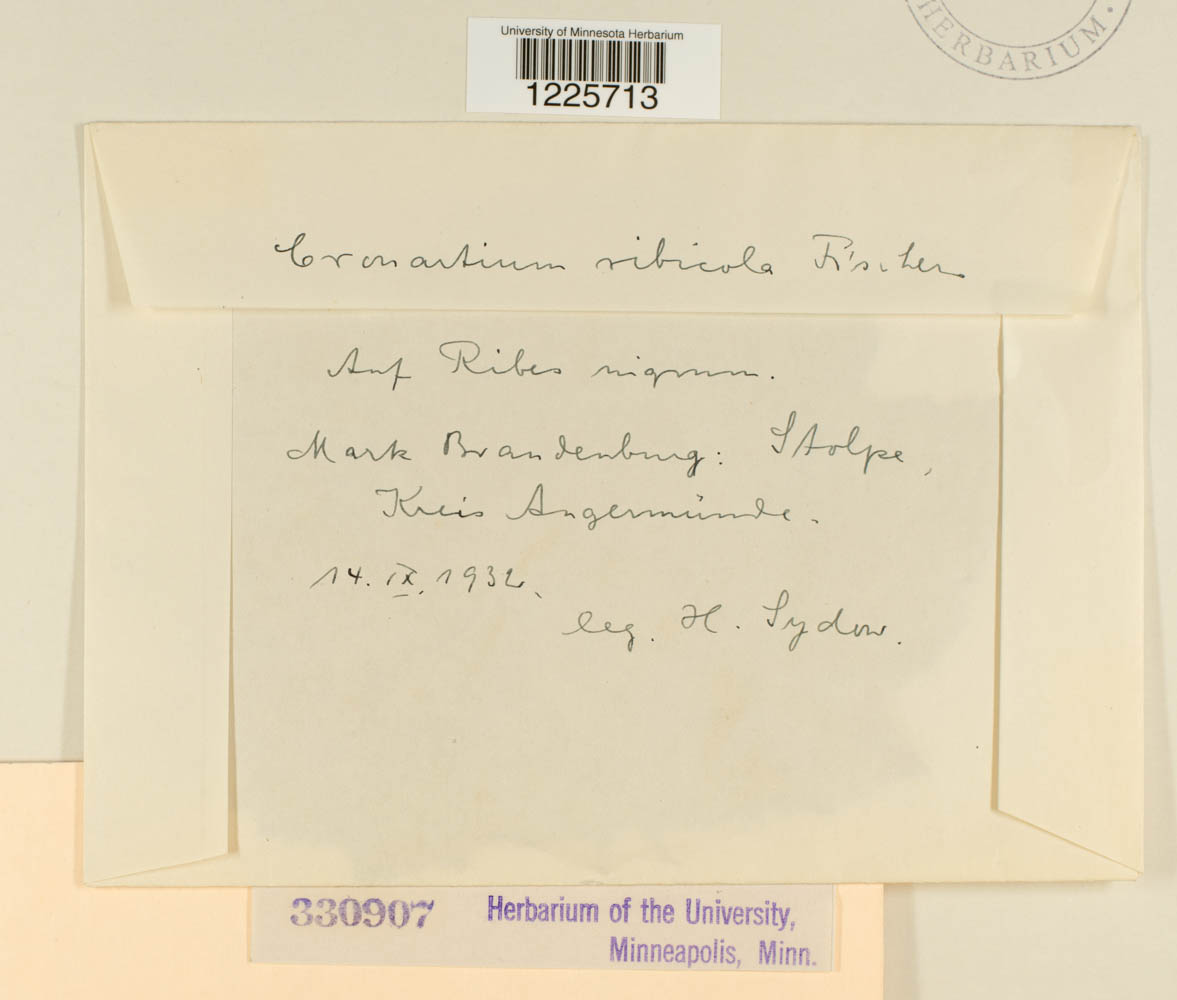 HERBARIUM
University of Minnesota Herbarium
1225713
Cronartium ribicola Fischer
Auf Ribes nigrum.
Mark Brandenburg: Stolpe,
Kreis Angermünde.
14. IX. 1932.
leg. H. Sydow.
330907 Herbarium of the University,
Minneapolis, Minn.